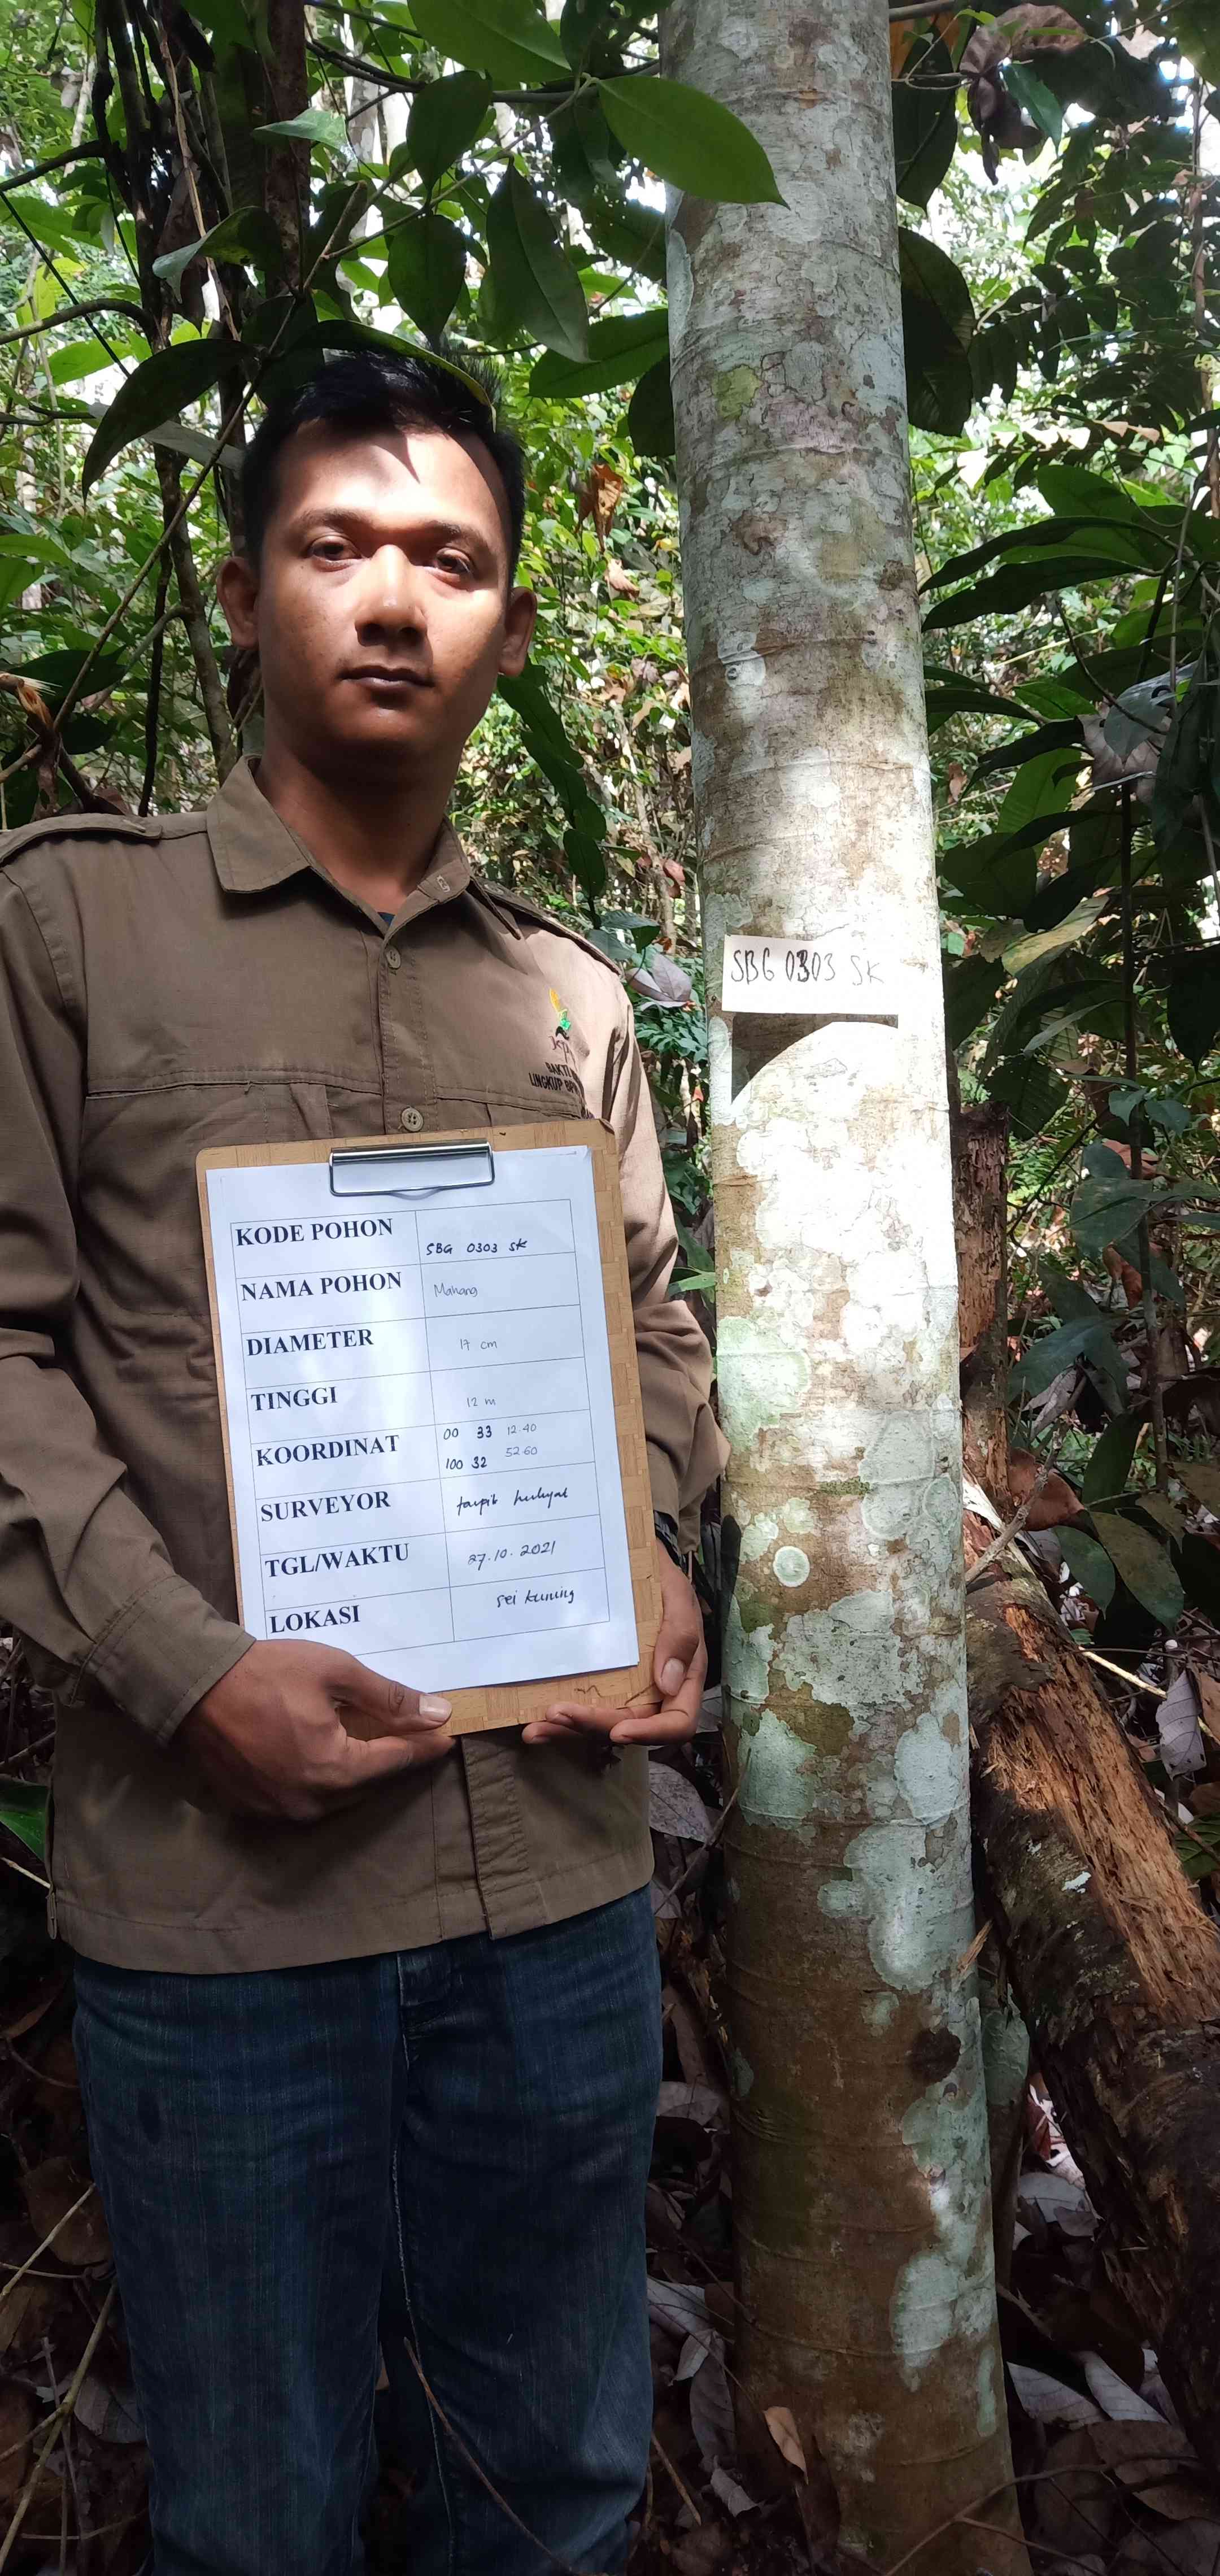 SBG 0303 SK
BAKTI
LINGKUP
KODE POHON SBG 0303 SK
NAMA POHON Mahang
DIAMETER 17 cm
TINGGI 12 m
KOORDINAT 00 33 12.40
100 32 52.60
SURVEYOR taupik hidayat
TGL/WAKTU 27.10.2021
LOKASI sei kuning